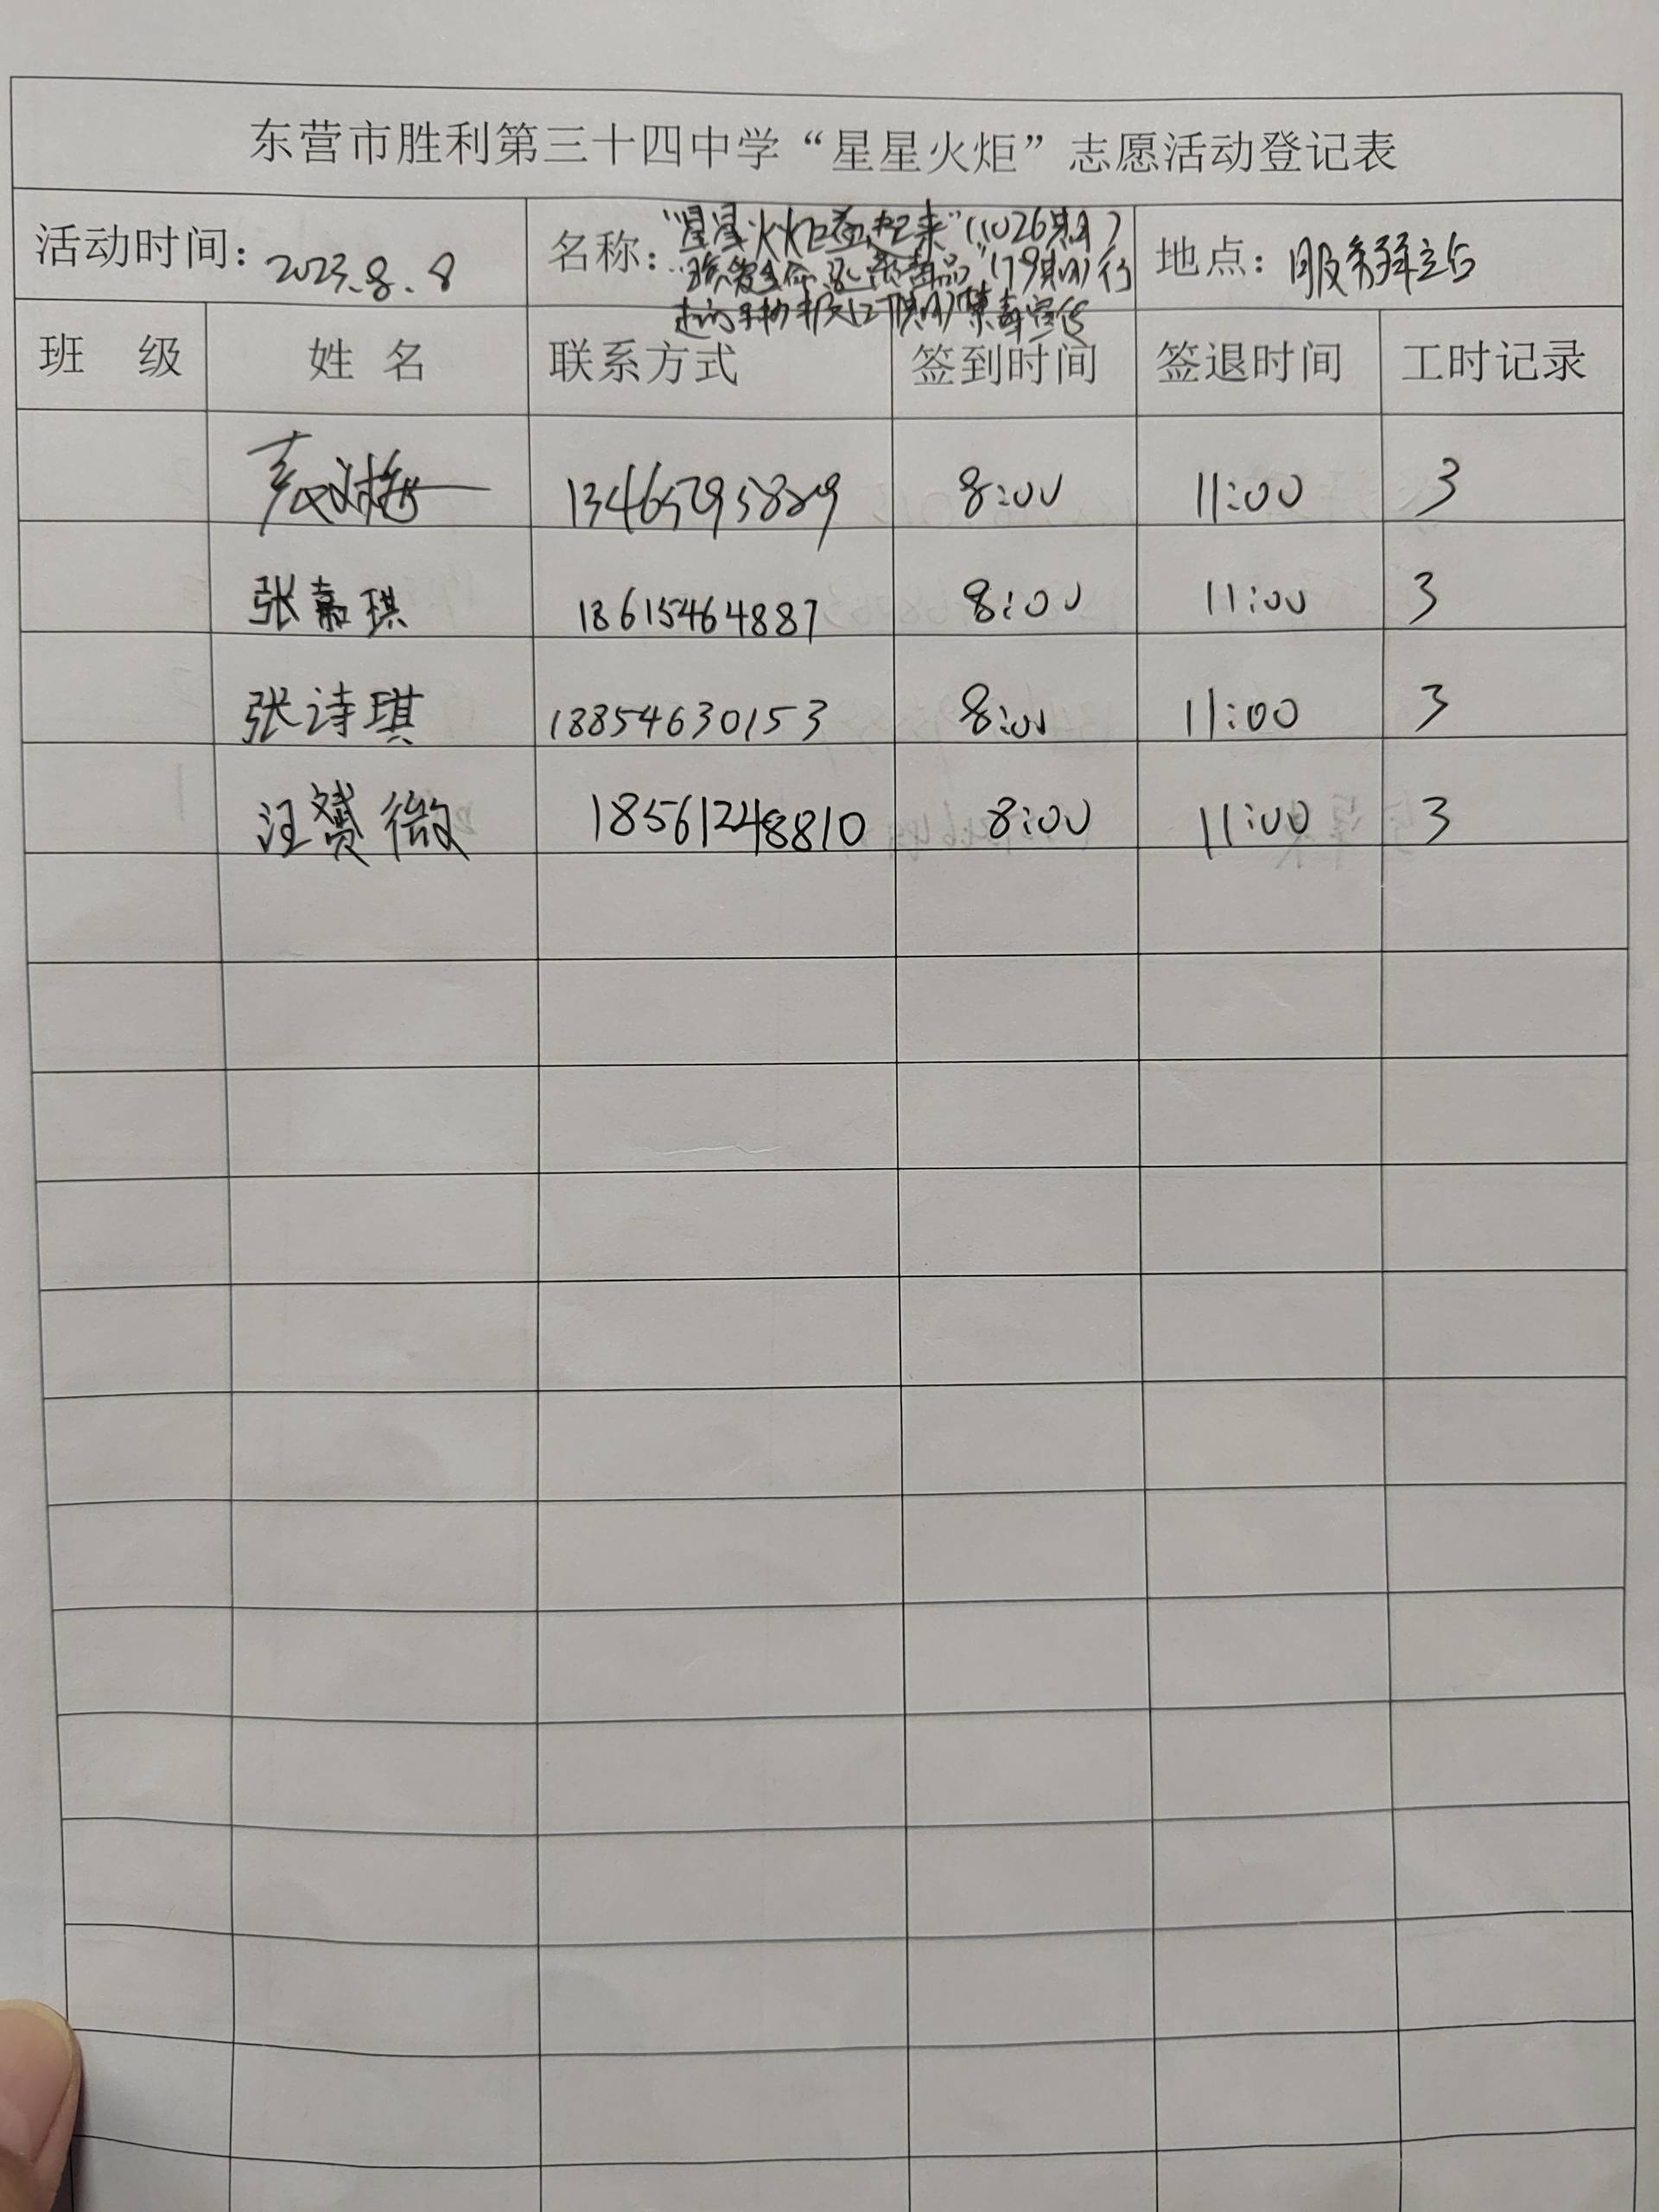 东营市胜利第三十四中学“星星火炬”志愿活动登记表
活动时间：2023.8.8 名称：“星星火炬益起来”（1026期） 地点：服务驿站
“珍爱生命 远离毒品”（79期）行
走的 禁毒宣传
班 级 姓 名 联系方式 签到时间 签退时间 工时记录
13465795829 8:00 11:00 3
张嘉琪 18615464887 8:00 11:00 3
张诗琪 18854630153 8:00 11:00 3
汪赟微 18561248810 8:00 11:00 3